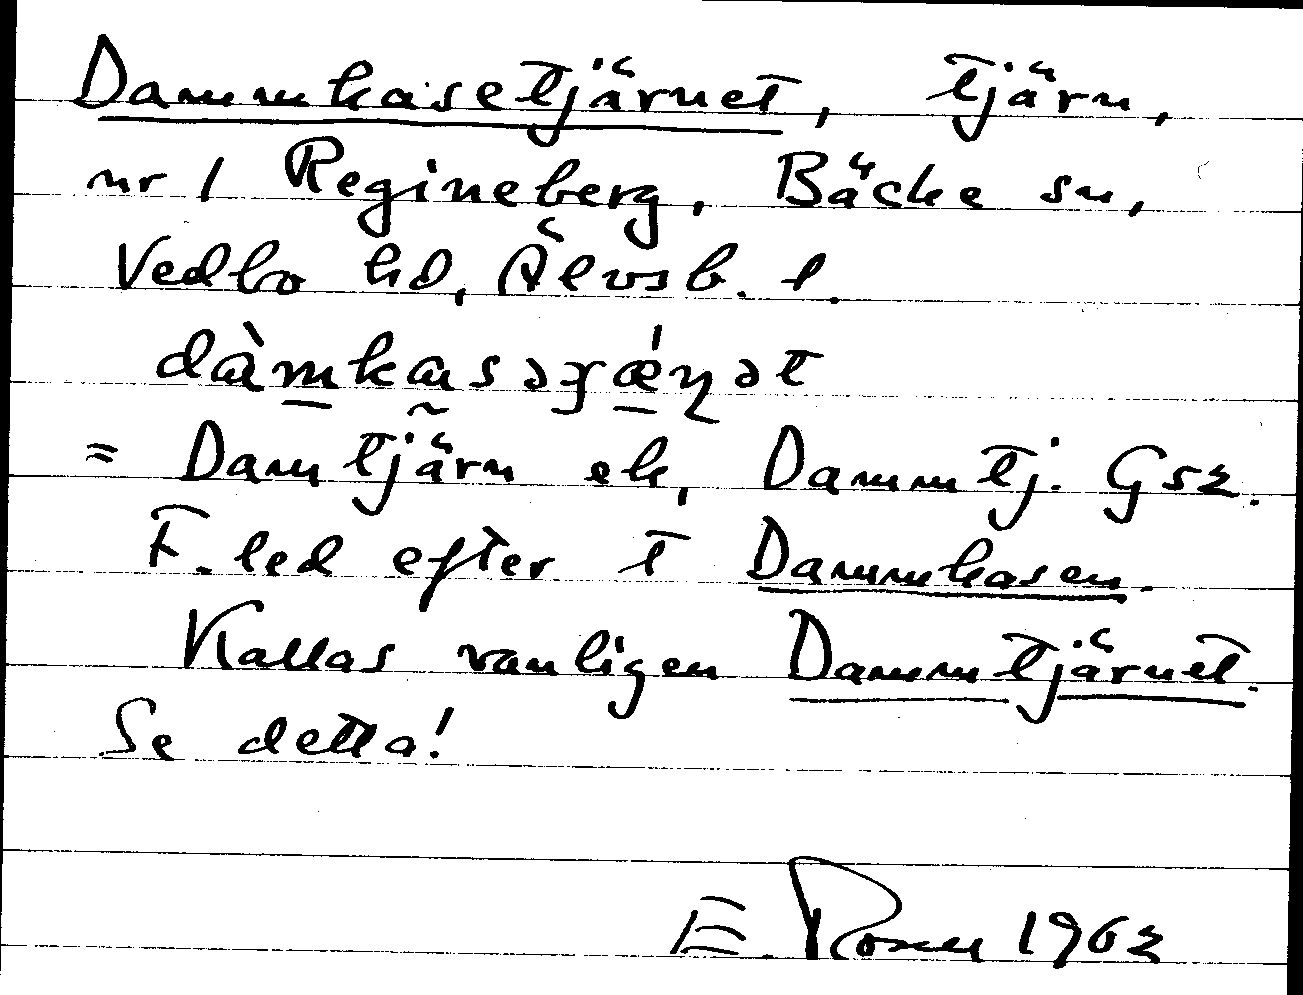 Dammkasetjärnet, tjärn,
nr 1 Regineberg, Bäcke sn,
Vedbo hd, Älvsb. l.
dàmkasəʒǽɳət
= Damtjärn ek, Dammtj. Gsz.
F. led efter T Dammkasen.
Kallas vanligen Dammtjärnet.
Se detta!
E. Rosen 1962